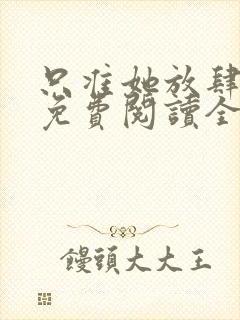 只准她放肆
免費閱讀全
饅頭大大王